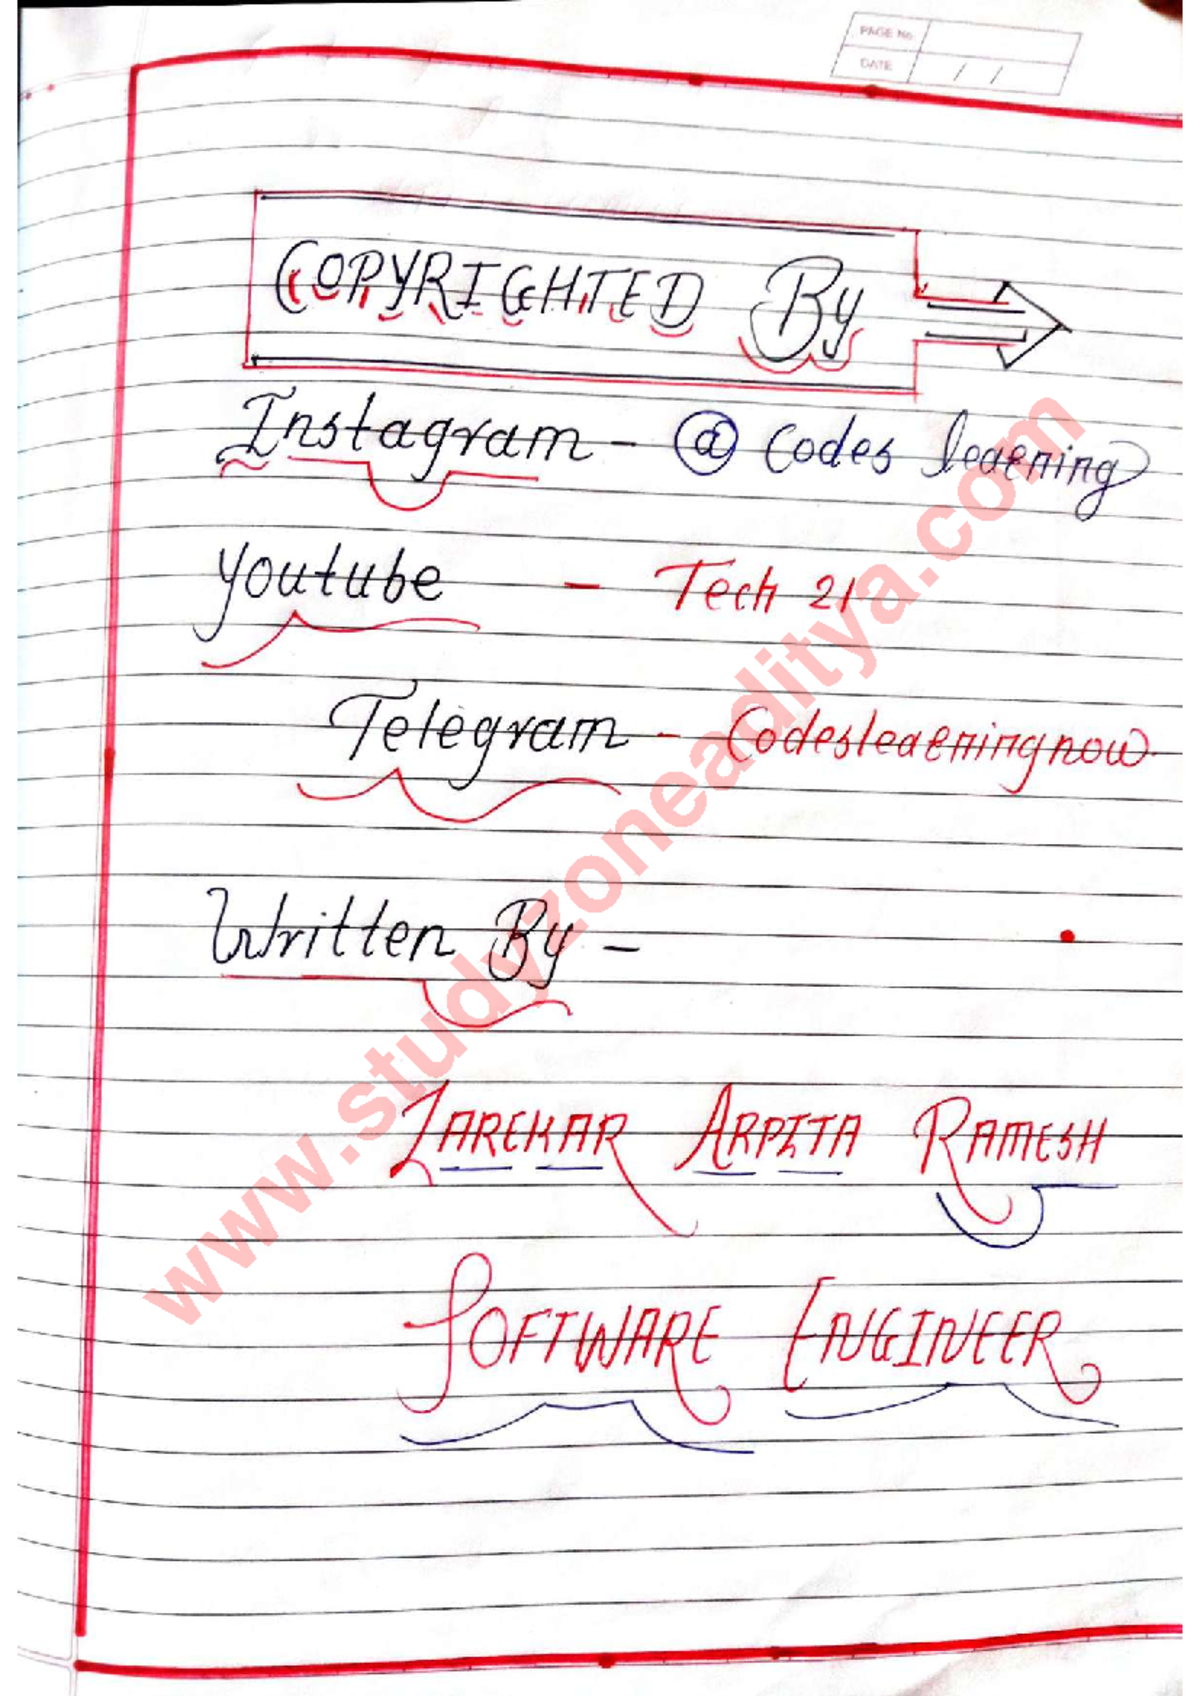 PAGE No.
DATE / /
COPYRIGHTED By
Instagram - @ Codes learning
Youtube - Tech 21
Telegram - Codeslearningnow
Written By -
ZAREKAR ARPITA RAMESH
SOFTWARE ENGINEER
www.studyzoneaditya.com